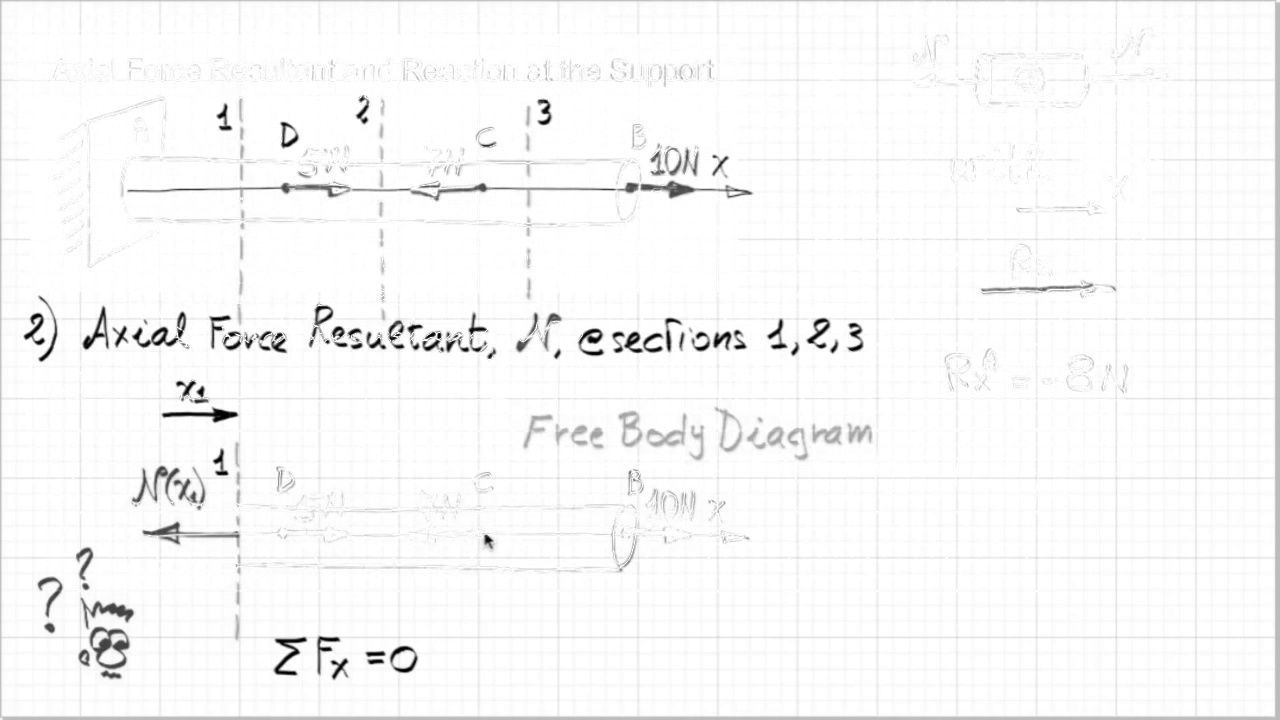 Axial Force Resultant and Reaction at the Support
N N
1 2 3
A D C B
5N 7N 10N x
x
Rx
2) Axial Force Resultant, N, @sections 1,2,3
RxA = -8N
x1
Free Body Diagram
N(x1) 1 D C B
5N 7N 10N x
?
?
ΣFx =0